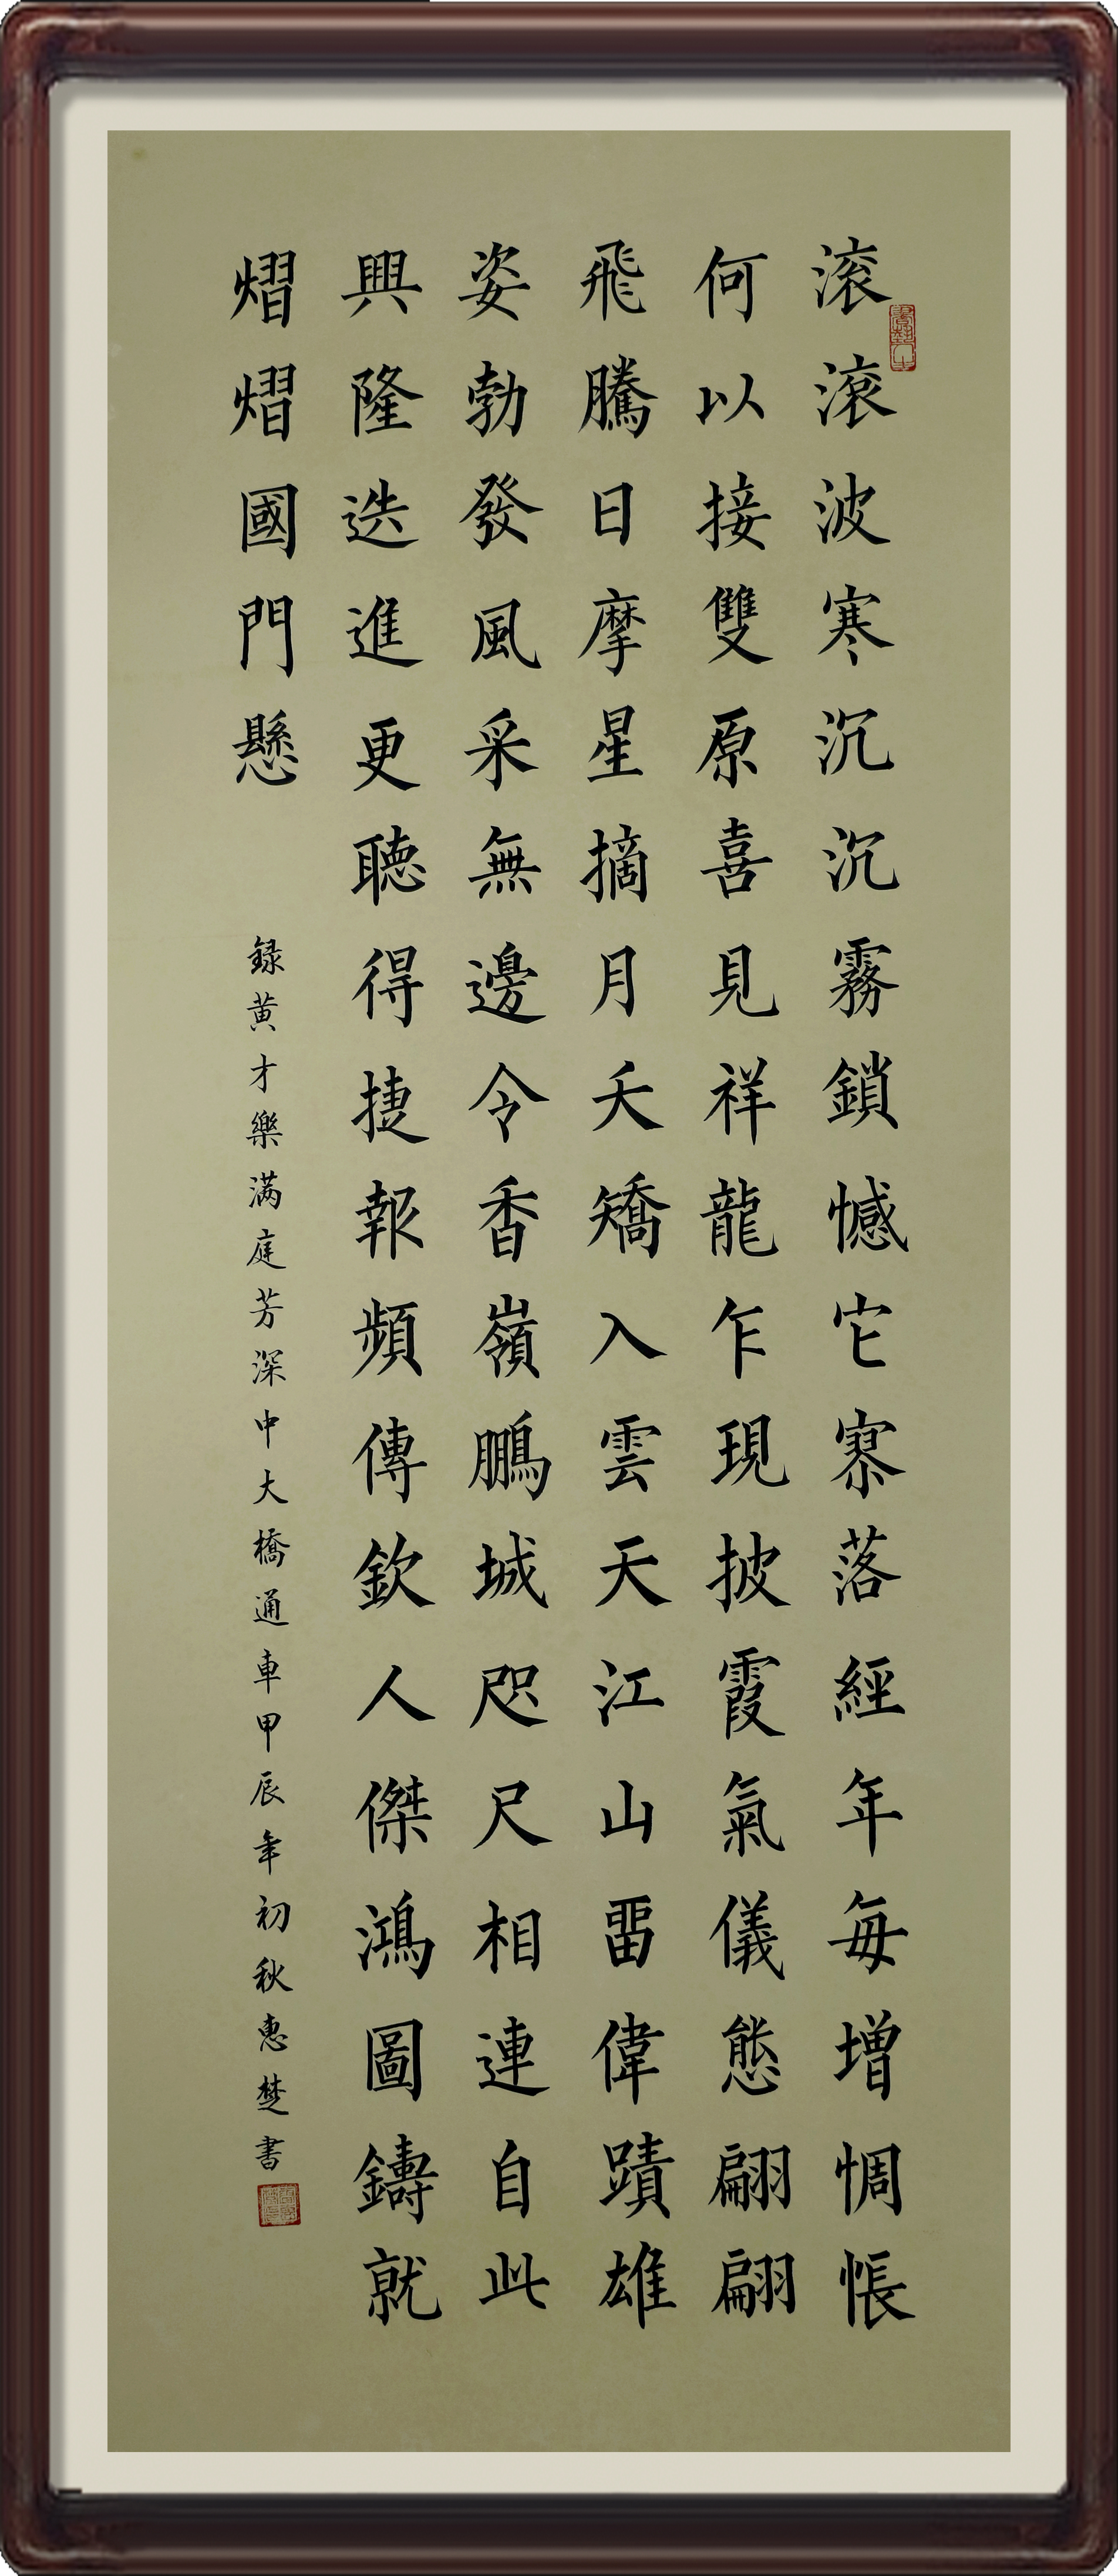 滚滚波寒沉沉霧鎖憾它寮落經年每增惆悵
何以接雙原喜見祥龍乍現披霞氣儀態翩翩
飛騰日摩星摘月夭矯入雲天江山畱偉蹟雄
姿勃發風采無邊令香嶺鵬城咫尺相連自此
興隆迭進更聽得捷報頻傳欽人傑鴻圖鑄就
熠熠國門懸
録黄才樂满庭芳深中大橋通車甲辰年初秋惠楚書